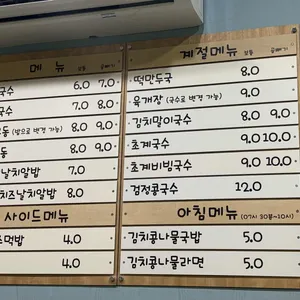 메뉴 보통 곱빼기
국수 6.0 7.0
국수 7.0 8.0
동 (밥으로 변경 가능) 8.0 9.0
동 8.0 9.0
날치알밥 7.0
치즈날치알밥 8.0
사이드메뉴
주먹밥 4.0
4.0
계절메뉴 보통 곱빼기
떡만두국 8.0
육개장 (국수로 변경 가능) 9.0
김치말이국수 8.0 9.0
초계국수 9.0 10.0
초계비빔국수 9.0 10.0
검정콩국수 12.0
아침메뉴 (07시 30분~10시)
김치콩나물국밥 5.0
김치콩나물라면 5.0